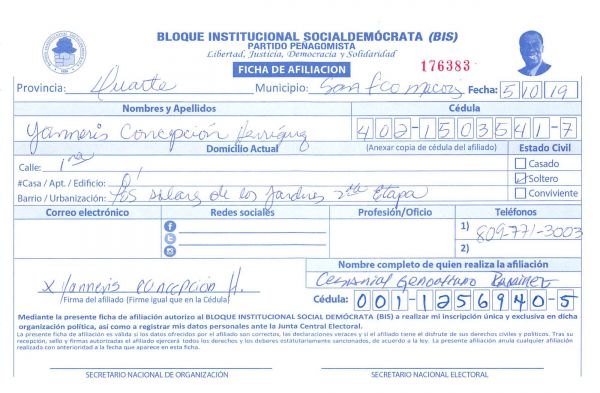 BLOQUE INSTITUCIONAL SOCIALDEMÓCRATA (BIS)
PARTIDO PEÑAGOMISTA
Libertad, Justicia, Democracia y Solidaridad
FICHA DE AFILIACION
176383
Provincia: Duarte Municipio: San Fco Macoris Fecha: 5/10/19
Nombres y Apellidos Cédula
Yanneris Concepción Henriquez 402-1503541-7
Domicilio Actual (Anexar copia de cédula del afiliado) Estado Civil
Calle: 1ra
Casado
#Casa / Apt. / Edificio: 01
Soltero
Barrio / Urbanización: los solares de los Jardines 2da Etapa
Conviviente
Correo electrónico Redes sociales Profesión/Oficio Teléfonos
1) 809-771-3003
2)
Nombre completo de quien realiza la afiliación
X Yanneris Concepción H. Ramirez
Firma del afiliado (Firme igual que en la Cédula)
Cédula: 001-1256940-5
Mediante la presente ficha de afiliación autorizo al BLOQUE INSTITUCIONAL SOCIAL DEMÓCRATA (BIS) a realizar mi inscripción única y exclusiva en dicha
organización política, así como a registrar mis datos personales ante la Junta Central Electoral.
La presente ficha de afiliación es válida si los datos ofrecidos por el afiliado son correctos, las declaraciones veraces y si el afiliado tiene el disfrute de sus derechos civiles y políticos. Tras su
recepción, sello y firmas autorizadas el afiliado ejercerá todos los derechos y los deberes estatutariamente sancionados, de acuerdo a la ley. La presente afiliación anula cualquier afiliación
realizada con anterioridad a la fecha que aparece en esta ficha.
SECRETARIO NACIONAL DE ORGANIZACIÓN SECRETARIO NACIONAL ELECTORAL